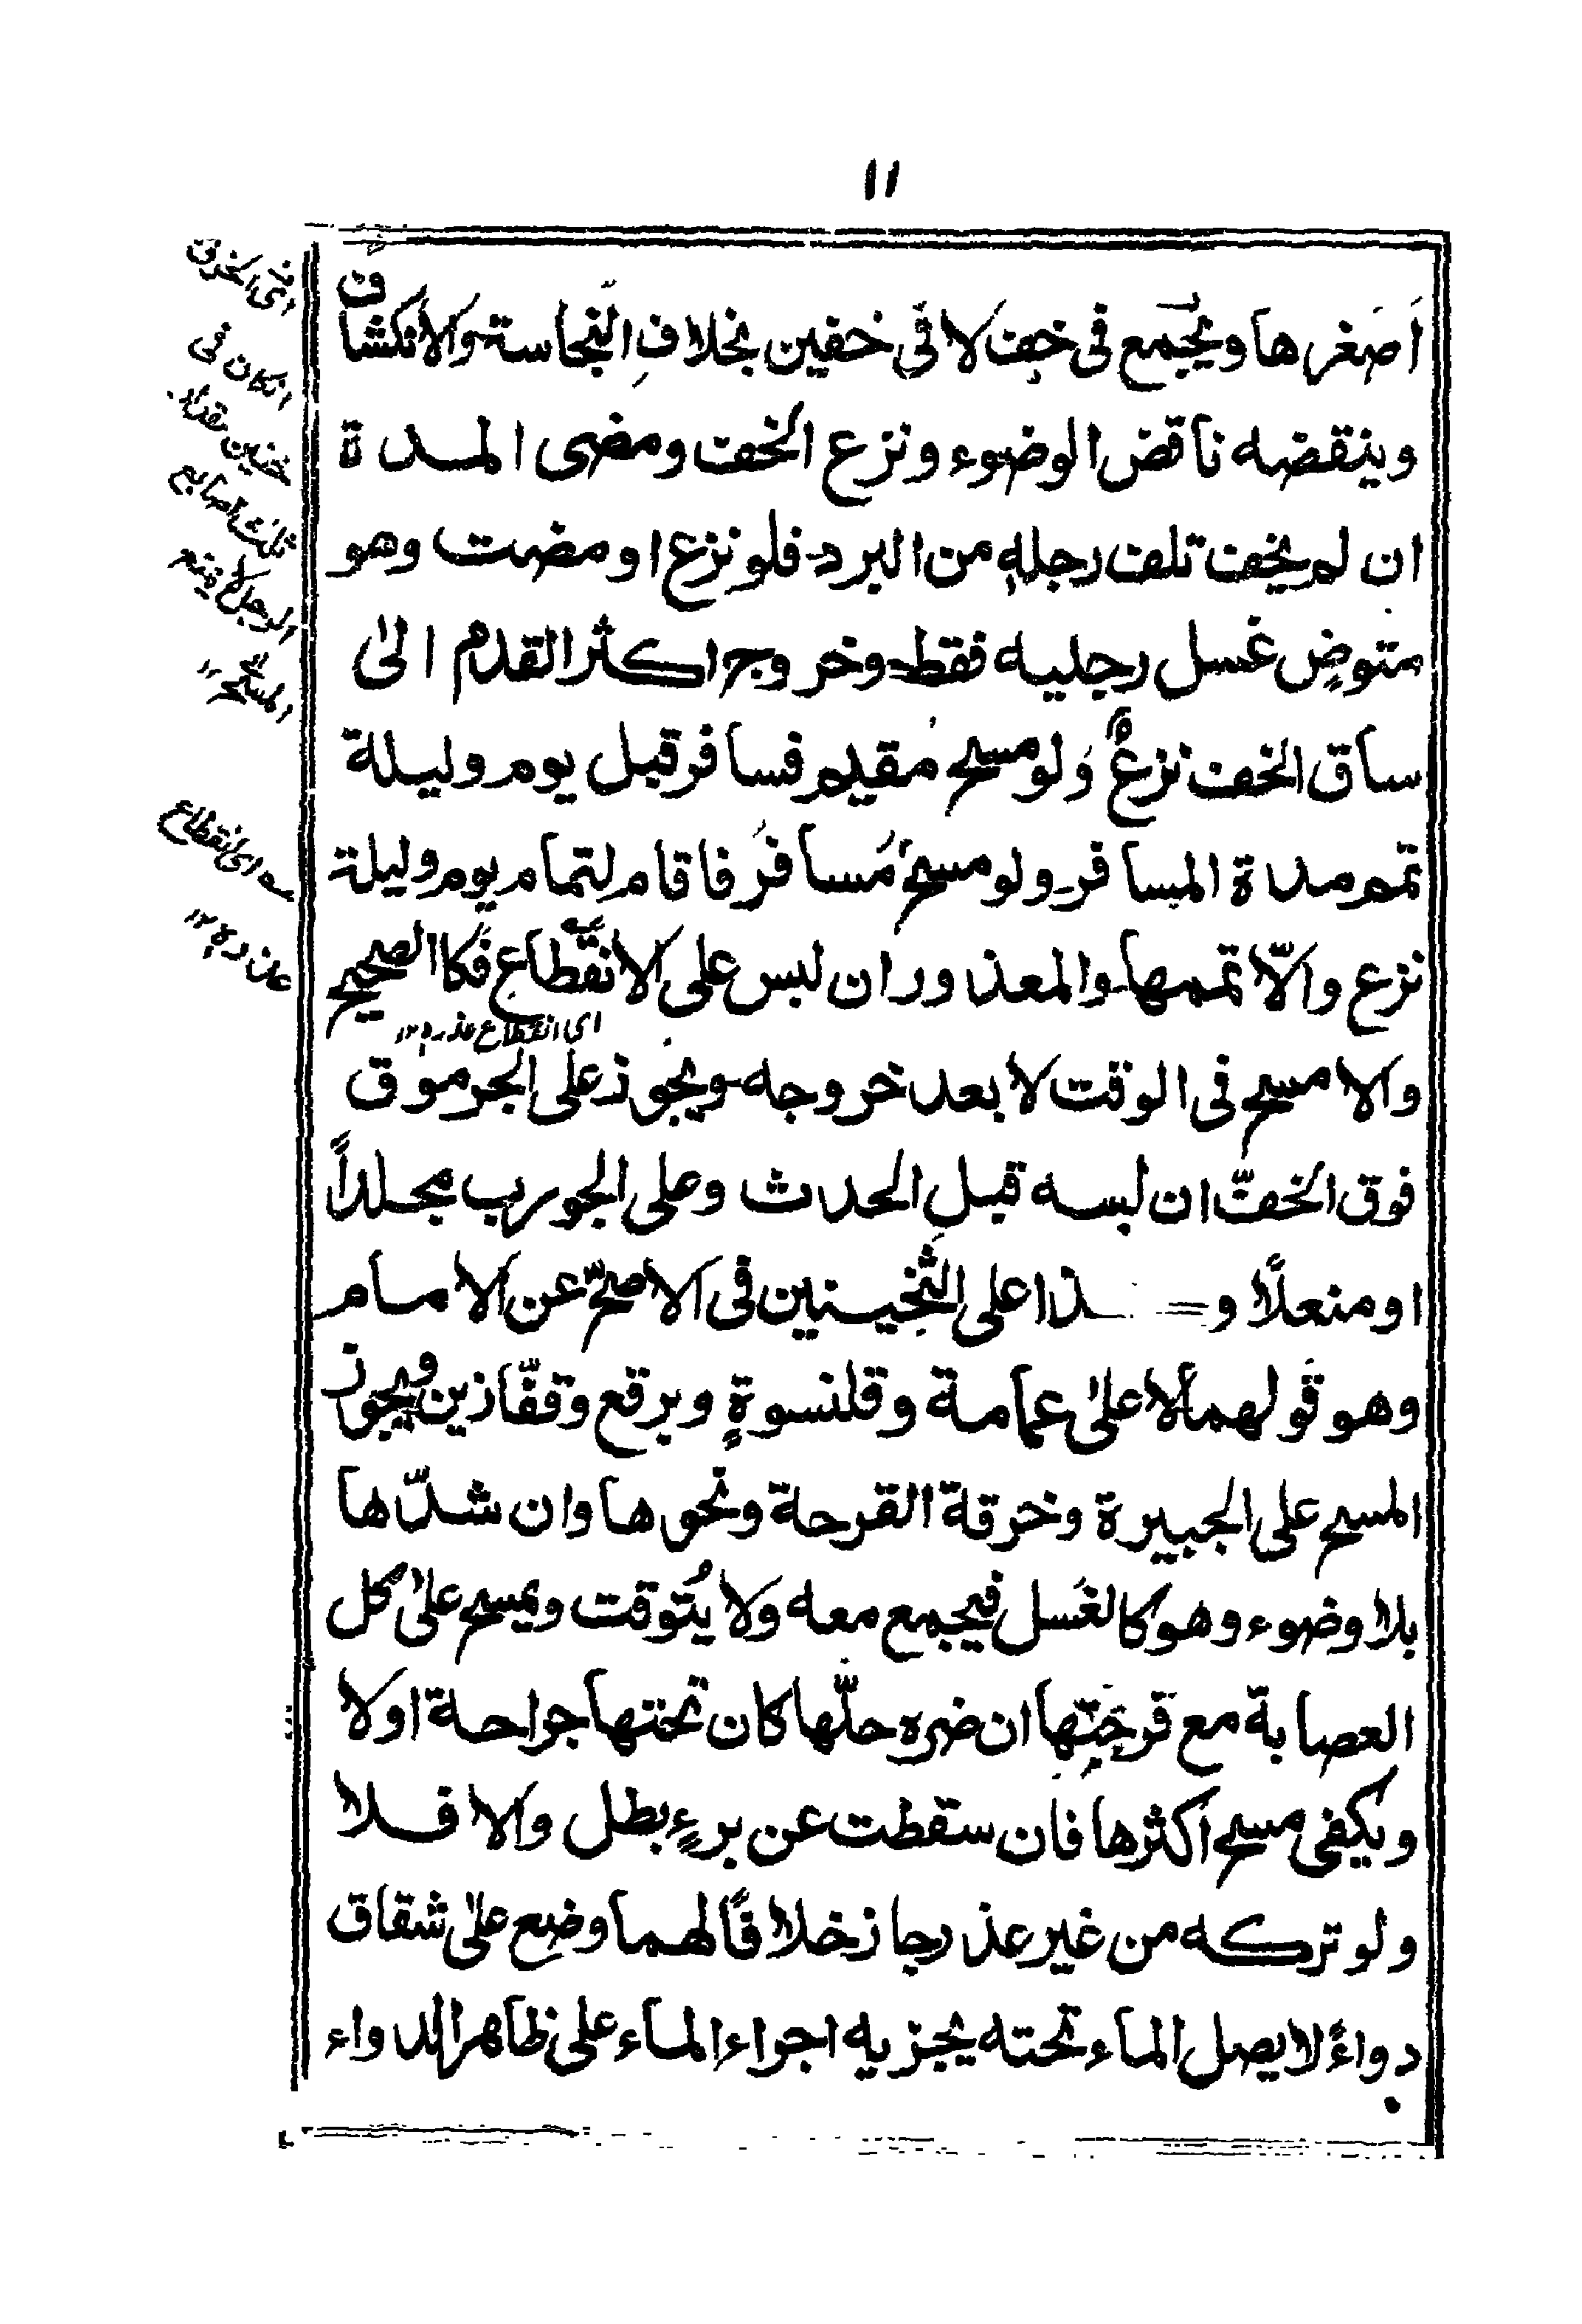 ١١
اَصَغرها ويُجمع فى خفٍ لا فى خفين بخلافِ النَّجاسة والانكشاف
وينقضه ناقض الوضوء ونزع الخف ومضى المدة
ان لم يخف تلف رجلهٖ من البرد فلو نزع او مضت وهو
متوضٍ غسل رجليه فقط وخروج اكثر القدم الىٰ
ساق الخف نزعٌ وَلو مسح مُقيم فسافر قبل يوم وليلة
تمم مدة المسافر ولو مسحَ مُسافرُ فاقام لتمام يوم وليلة
نزع والّا تممها والمعذور ان لبس على الانقطاع فكا الصحيح
اى انقطاع عذره ١٢
والا مسح فى الوقت لا بعد خروجه ويجوز على الجرموق
فوق الخفّ ان لبسه قبل الحدث وعلى الجورب مجلداً
او منعلًا و ــذا على الثَّخينين فى الاصحّ عن الامام
وهو قولهما لا علىٰ عمامة وقلنسوةٍ وبرقع وقفّازين ويجوز
المسح على الجبيرة وخرقة القرحة ونحوها وان شدّها
بلا وضوء وهو كالغَسل فيجمع معه ولا يُتوقت ويمسح علىٰ كل
العصابة مع قرحَتِها ان ضره حلّها كان تحتها جراحة اولا
ويكفى مسح اكثرها فان سقطت عن برءٍ بطل والا فلا
ولو تركه من غير عذر جاز خلافًا لهما وضع علىٰ شقاق
دواءً لا يصل الماء تحته يجزيه اجراء الماء على ظاهر الدواء
اى الخرق
انكان فى
خفين مقدار
ثلث اصابع
الرجل لا يمنع
المسح ١٢
ـه اى انقطاع
عذره ١٢